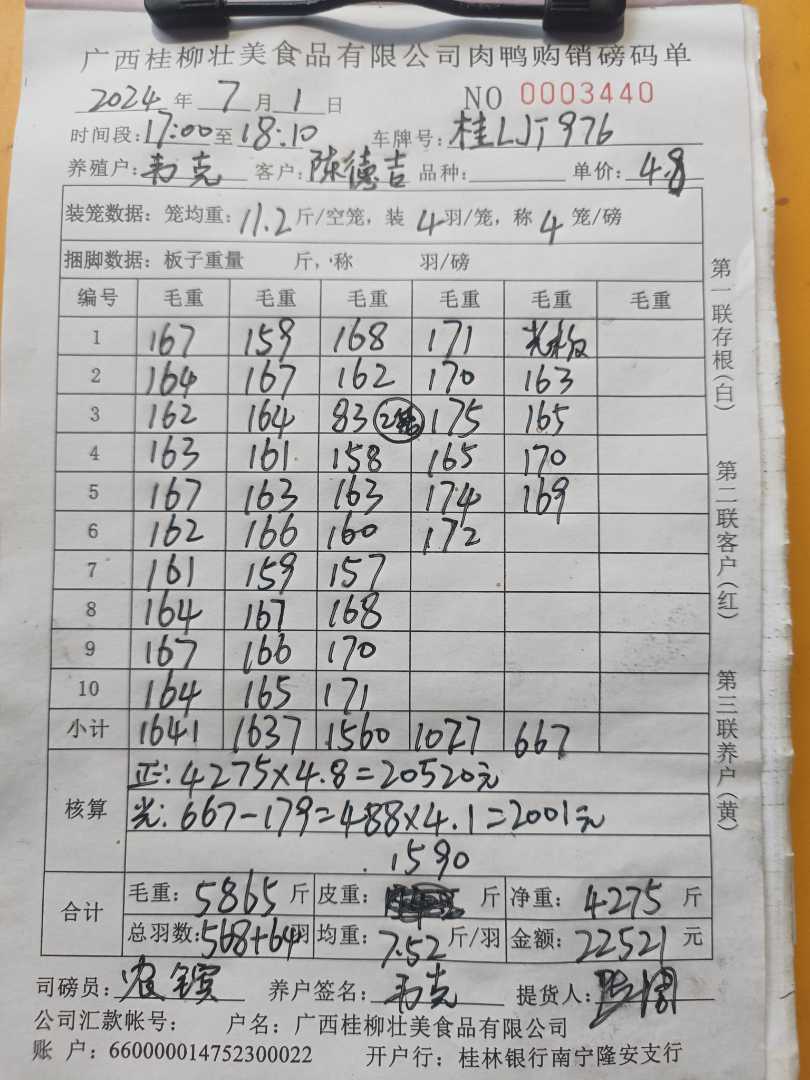 广西桂柳壮美食品有限公司肉鸭购销磅码单
2024年 7月 1日 NO 0003440
时间段:17:00至18:10 车牌号:桂LJT976
养殖户:韦克 客户:陈德吉 品种: 单价:4.8
装笼数据:笼均重:11.2斤/空笼,装4羽/笼,称4笼/磅
捆脚数据:板子重量 斤,称 羽/磅
编号 毛重 毛重 毛重 毛重 毛重 毛重
1 167 159 168 171 光板
2 164 167 162 170 163
3 162 164 83 175 165
4 163 161 158 165 170
5 167 163 163 174 169
6 162 166 160 172
7 161 159 157
8 164 167 168
9 167 166 170
10 164 165 171
小计 1641 1637 1560 1027 667
核算 正:4275×4.8=20520元
光:667-179=488×4.1=2001元
1590
合计 毛重:5865斤 皮重: 斤 净重:4275斤
总羽数:568+64羽 均重:7.52斤/羽 金额:22521元
司磅员: 养户签名:韦克 提货人:
公司汇款帐号: 户名:广西桂柳壮美食品有限公司
账 户:660000014752300022 开户行:桂林银行南宁隆安支行
第一联存根(白)
第二联客户(红)
第三联养户(黄)